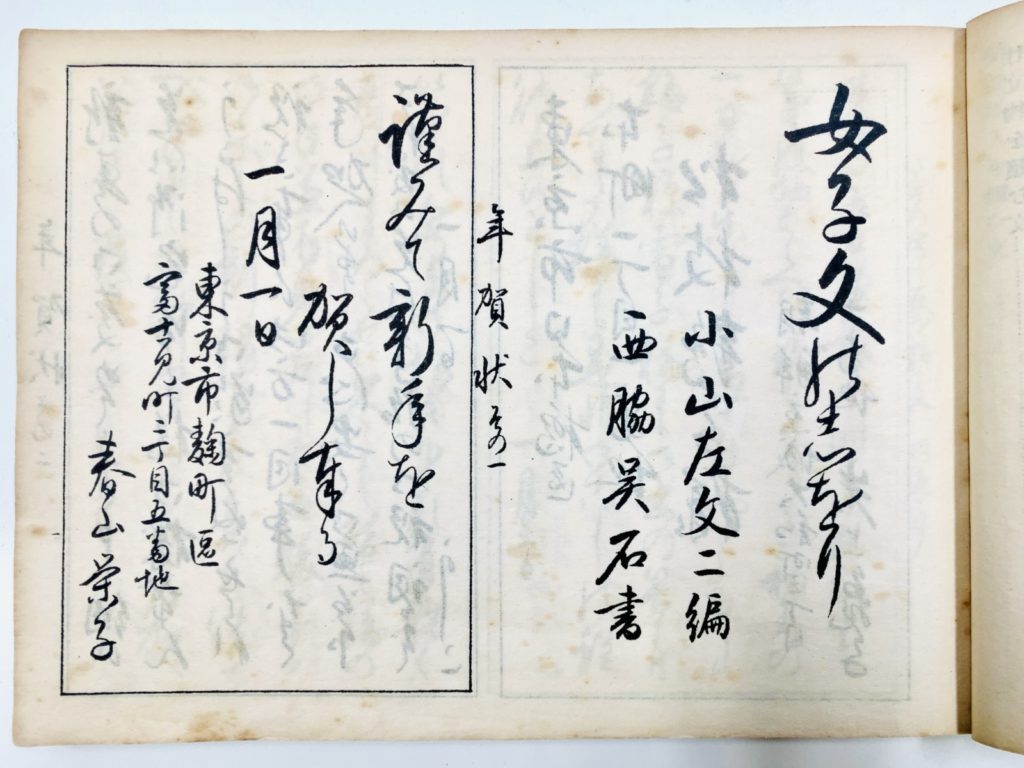 女子文のしをり
小山左文二編
西脇呉石書
年賀状その一
謹みて新年を
賀し奉る
一月一日
東京市麹町区
富士見町二丁目五番地
春山栄子